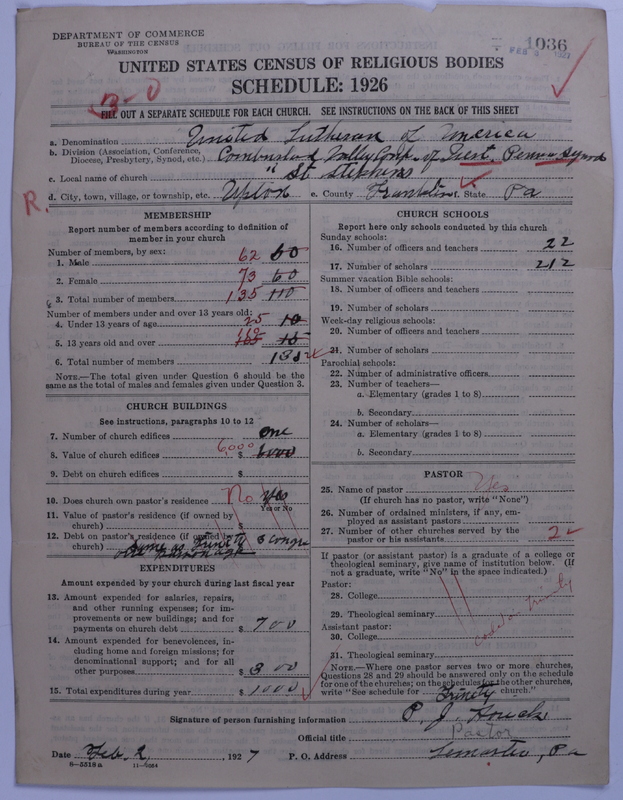 DEPARTMENT OF COMMERCE
BUREAU OF THE CENSUS
WASHINGTON
1036
FEB 5 1927
UNITED STATES CENSUS OF RELIGIOUS BODIES
SCHEDULE: 1926
3-0
FILL OUT A SEPARATE SCHEDULE FOR EACH CHURCH. SEE INSTRUCTIONS ON THE BACK OF THIS SHEET
a. Denomination United Lutheran of America
b. Division (Association, Conference, Diocese, Presbytery, Synod, etc.) Valley Conf. of West Penn Synod
c. Local name of church " St Stephens
d. City, town, village, or township, etc. Upton e. County Franklin f. State Pa
R.
MEMBERSHIP
Report number of members according to definition of
member in your church
Number of members, by sex:
1. Male 62 50
2. Female 73 60
3. Total number of members 135 110
Number of members under and over 13 years old:
4. Under 13 years of age 25 10
5. 13 years old and over 110
6. Total number of members 135
NOTE.—The total given under Question 6 should be the
same as the total of males and females given under Question 3.
CHURCH BUILDINGS
See instructions, paragraphs 10 to 12
7. Number of church edifices One
8. Value of church edifices 6,000 $ 6000
9. Debt on church edifices $
10. Does church own pastor's residence No Yes
Yes or No
11. Value of pastor's residence (if owned by
church) $
12. Debt on pastor's residence (if owned by
church) Same as Trinity 3 Cong
EXPENDITURES
Amount expended by your church during last fiscal year
13. Amount expended for salaries, repairs,
and other running expenses; for im-
provements or new buildings; and for
payments on church debt $ 700
14. Amount expended for benevolences, in-
cluding home and foreign missions; for
denominational support; and for all
other purposes $ 300
15. Total expenditures during year $ 1000
CHURCH SCHOOLS
Report here only schools conducted by this church
Sunday schools:
16. Number of officers and teachers 22
17. Number of scholars 212
Summer vacation Bible schools:
18. Number of officers and teachers
19. Number of scholars
Week-day religious schools:
20. Number of officers and teachers
21. Number of scholars
Parochial schools:
22. Number of administrative officers
23. Number of teachers—
a. Elementary (grades 1 to 8)
b. Secondary
24. Number of scholars—
a. Elementary (grades 1 to 8)
b. Secondary
PASTOR
25. Name of pastor Yes
(If church has no pastor, write "None")
26. Number of ordained ministers, if any, em-
ployed as assistant pastors
27. Number of other churches served by the
pastor or his assistants 2
If pastor (or assistant pastor) is a graduate of a college or
theological seminary, give name of institution below. (If
not a graduate, write "No" in the space indicated.)
Pastor:
28. College
29. Theological seminary
coded on trinity
Assistant pastor:
30. College
31. Theological seminary
NOTE.—Where one pastor serves two or more churches,
Questions 28 and 29 should be answered only on the schedule
for one of the churches; on the schedules for the other churches,
write "See schedule for Trinity church."
Signature of person furnishing information P. J. Houck
Official title Pastor
Date Feb 2, 1927 P. O. Address Lemaster, Pa
8—5518 a